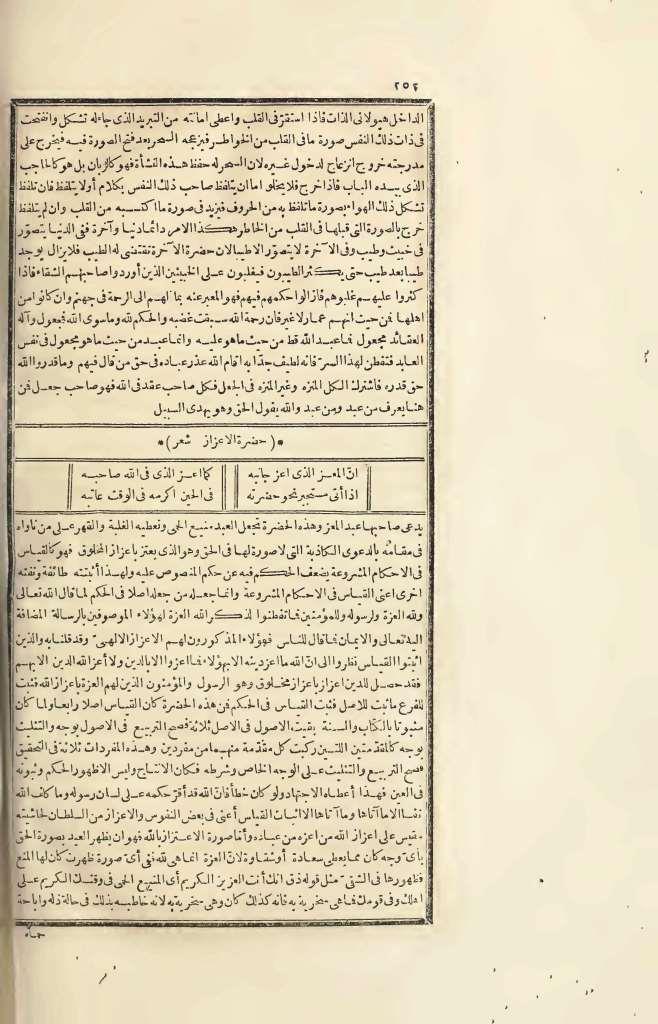 ٢٥٢
الداخل هيولانى الذات فاذا استقر فى القلب وأعطى أمانته من التبريد الذى جاءله تشكل وانفتحت
فى ذات ذلك النفس صورة ما فى القلب من الخواطر فيزعجه السحر بعد فتح الصورة فيه فيخرج على
مدرجته خروج انزعاج لدخول غيره لان السحر له حفظ هذه النشأة فهو كالربان بل هو كالحاجب
الذى بيده الباب فاذا خرج فلا يخلو اما ان يتلفظ صاحب ذلك النفس بكلام أولا يتلفظ فان تلفظ
تشكل ذلك الهواء بصورة ما تلفظ به من الحروف فيزيد فى صورة ما اكتسبه من القلب وان لم يتلفظ
خرج بالصورة التى قبلها فى القلب من الخاطر هكذا الامر دائما دنيا وآخرة ففى الدنيا يتصور
فى خبيث وطيب وفى الآخرة لا يتصور الاطيبا لان حضرة الآخرة تقتضى له الطيب فلا يزال يوجد
طيبا بعد طيب حتى يكثر الطيبون فيغلبون على الخبيثين الذين أوردوا صاحبهم الشقاء فاذا
كثروا عليهم غلبوهم فازالوا حكمهم فيهم فهو المعبر عنه بما لهم الى الرحمة فى جهنم وان كانوا من
أهلها فمن حيث انهم عمار لا غير فان رحمة الله سبقت غضبه والحكم لله وما سوى الله فمجعول وآله
العقائد مجعول فما عبد الله قط من حيث ما هو عليه وانما عبد من حيث ما هو مجعول فى نفس
العابد فتفطن لهذا السر فانه لطيف جدا به أقام الله عذر عباده فى حق من قال فيهم وما قدروا الله
حق قدره فاشترك الكل المنزه وغير المنزه فى الجعل فكل صاحب عقد فى الله فهو صاحب جعل فمن
هنا يعرف من عبد ومن عبد والله يقول الحق وهو يهدى السبيل
*(حضرة الاعزاز شعر)*
ان المعز الذى أعز جانبه كما أعز الذى فى الله صاحبه
اذا أتى مستجير نحو حضرته فى الحين أكرمه فى الوقت عاتبه
يدعى صاحبها عبد المعز وهذه الحضرة تجعل العبد منيع الحمى وتعطيه الغلبة والقهر على من ناواه
فى مقامه بالدعوى الكاذبة التى لا صورة لها فى الحق وهو الذى يعتز باعزاز المخلوق فهو كالقياس
فى الاحكام المشروعة يضعف الحكم فيه عن حكم المنصوص عليه ولهذا أثبتته طائفة ونفته
أخرى أعنى القياس فى الاحكام المشروعة وانما جعله من جعله أصلا فى الحكم لما قال الله تعالى
ولله العزة ولرسوله وللمؤمنين فما تفطنوا لذكر الله العزة لهؤلاء الموصوفين بالرسالة المضافة
اليه تعالى والايمان فما قال للناس فهؤلاء المذكورون لهم الاعزاز الالهى وقد قلنا به والذين
أثبتوا القياس نظروا الى أن الله ما أعز دينه الا بهؤلاء فما أعزوا الا بالدين ولا أعز الله الدين الا بهم
فقد حصل للدين اعزاز باعزاز مخلوق وهو الرسول والمؤمنون الذين لهم العزة باعزاز الله فثبت
للفرع ما ثبت للاصل فثبت القياس فى الحكم فمن هذه الحضرة كان القياس أصلا رابعا ولما كان
مثبوتا بالكتاب والسنة بقيت الاصول فى الاصل ثلاثة فصح التربيع فى الاصول بوجه والتثليث
بوجه كالمقدمتين اللتين ركبت كل مقدمة منهما من مفردين وهذه المفردات ثلاثة فى التحقيق
فصح التربيع والتثليث على الوجه الخاص وشرطه فكان الانتاج وليس الاظهور الحكم وثبوته
فى العين فهذا أعطاه الاجتهاد ولو كان خطأ فان الله قد أقر حكمه على لسان رسوله وما كلف الله
نفسا الا ما آتاها وما آتاها الا اثبات القياس أعنى فى بعض النفوس والاعزاز من السلطان لحاشيته
مقيس على اعزاز الله من أعزه من عباده وأما صورة الاعتزاز بالله فهو ان يظهر العبد بصورة الحق
بأى وجه كان مما يعطى سعادة أو شقاوة لان العزة انما هى لله ففى أى صورة ظهرت كان لها المنع
فظهورها فى الشقى مثل قوله ذق انك أنت العزيز الكريم أى المنيع الحمى فى وقتك الكريم على
أهلك وفى قومك فما هى سخرية به فانه كذلك كان وهى سخرية به لانه خاطبه بذلك فى حالة ذله واباحة
حماه